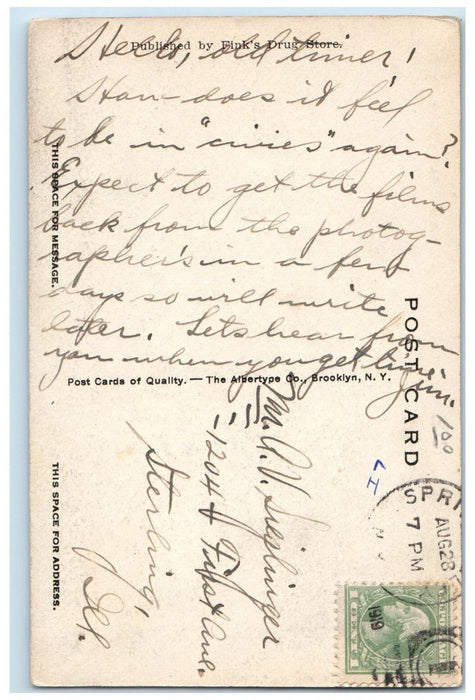 Published by Fink's Drug Store.
Hello, old timer!
How does it feel
to be in "civies" again?
Expect to get the films
back from the photog-
rapher's in a few
days so will write
later. Lets hear from
you when you get time.
Jim.
THIS SPACE FOR MESSAGE.
POST CARD
Post Cards of Quality. — The Albertype Co., Brooklyn, N. Y.
100
THIS SPACE FOR ADDRESS.
A. V.
1204 First Ave.
Sterling,
Ill.
SPRI
AUG 28
7 PM
1919
1 CENT 1